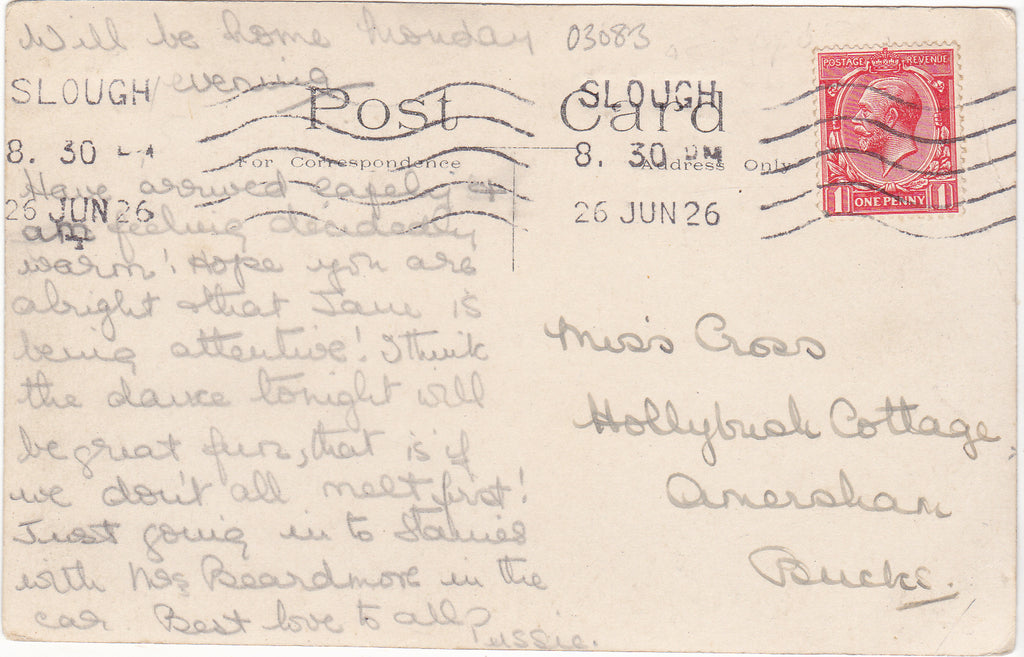 Will be home Monday
evening
03083
SLOUGH
8. 30
26 JUN 26
Post Card
For Correspondence
Address Only
SLOUGH
8. 30 PM
26 JUN 26
POSTAGE REVENUE
1 ONE PENNY 1
Have arrived safely &
am feeling decidedly
warm! Hope you are
alright & that Jam is
being attentive! I think
the dance tonight will
be great fun, that is if
we don't all melt first!
Just going in to Staines
with Mrs Beardmore in the
car Best love to all
Pussie.
Miss Cross
Hollybush Cottage,
Amersham
Bucks.